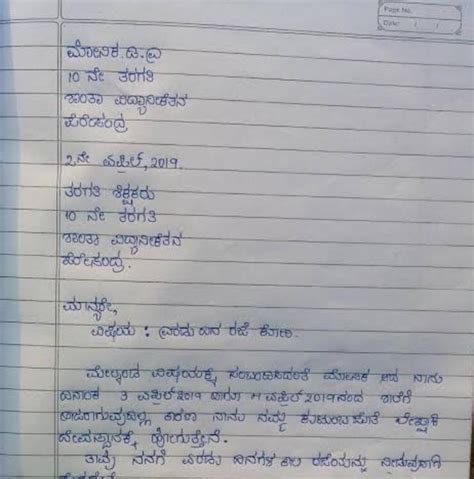 Page No.
Date: / /
ಮೋನಿಕ.ಡಿ.ವಿ
10 ನೇ ತರಗತಿ
ಶಾಂತಾ ವಿದ್ಯಾನಿಕೇತನ
ಪೆರೇಸಂದ್ರ
2ನೇ ಏಪ್ರಿಲ್, 2019.
ತರಗತಿ ಶಿಕ್ಷಕರು
10 ನೇ ತರಗತಿ
ಶಾಂತಾ ವಿದ್ಯಾನಿಕೇತನ
ಪೆರೇಸಂದ್ರ.
ಮಾನ್ಯರೇ,
ವಿಷಯ : ಎರಡು ದಿನ ರಜೆ ಕೋರಿ.
ಮೇಲ್ಕಂಡ ವಿಷಯಕ್ಕೆ ಸಂಬಂಧಿಸಿದಂತೆ ಮೋನಿಕ ಆದ ನಾನು
ದಿನಾಂಕ 3 ಏಪ್ರಿಲ್ 2019 ಹಾಗೂ 4 ಏಪ್ರಿಲ್ 2019 ನಂದು ಶಾಲೆಗೆ
ಹಾಜರಾಗುವುದಿಲ್ಲ ಕಾರಣ ನಾನು ನಮ್ಮ ಕುಟುಂಬದ ಜೊತೆ
ದೇವಸ್ಥಾನಕ್ಕೆ ಹೋಗುತ್ತೇನೆ.
ತಾವು ನನಗೆ ಎರಡು ದಿನಗಳ ಕಾಲ ರಜೆಯನ್ನು ನೀಡುವುದಾಗಿ